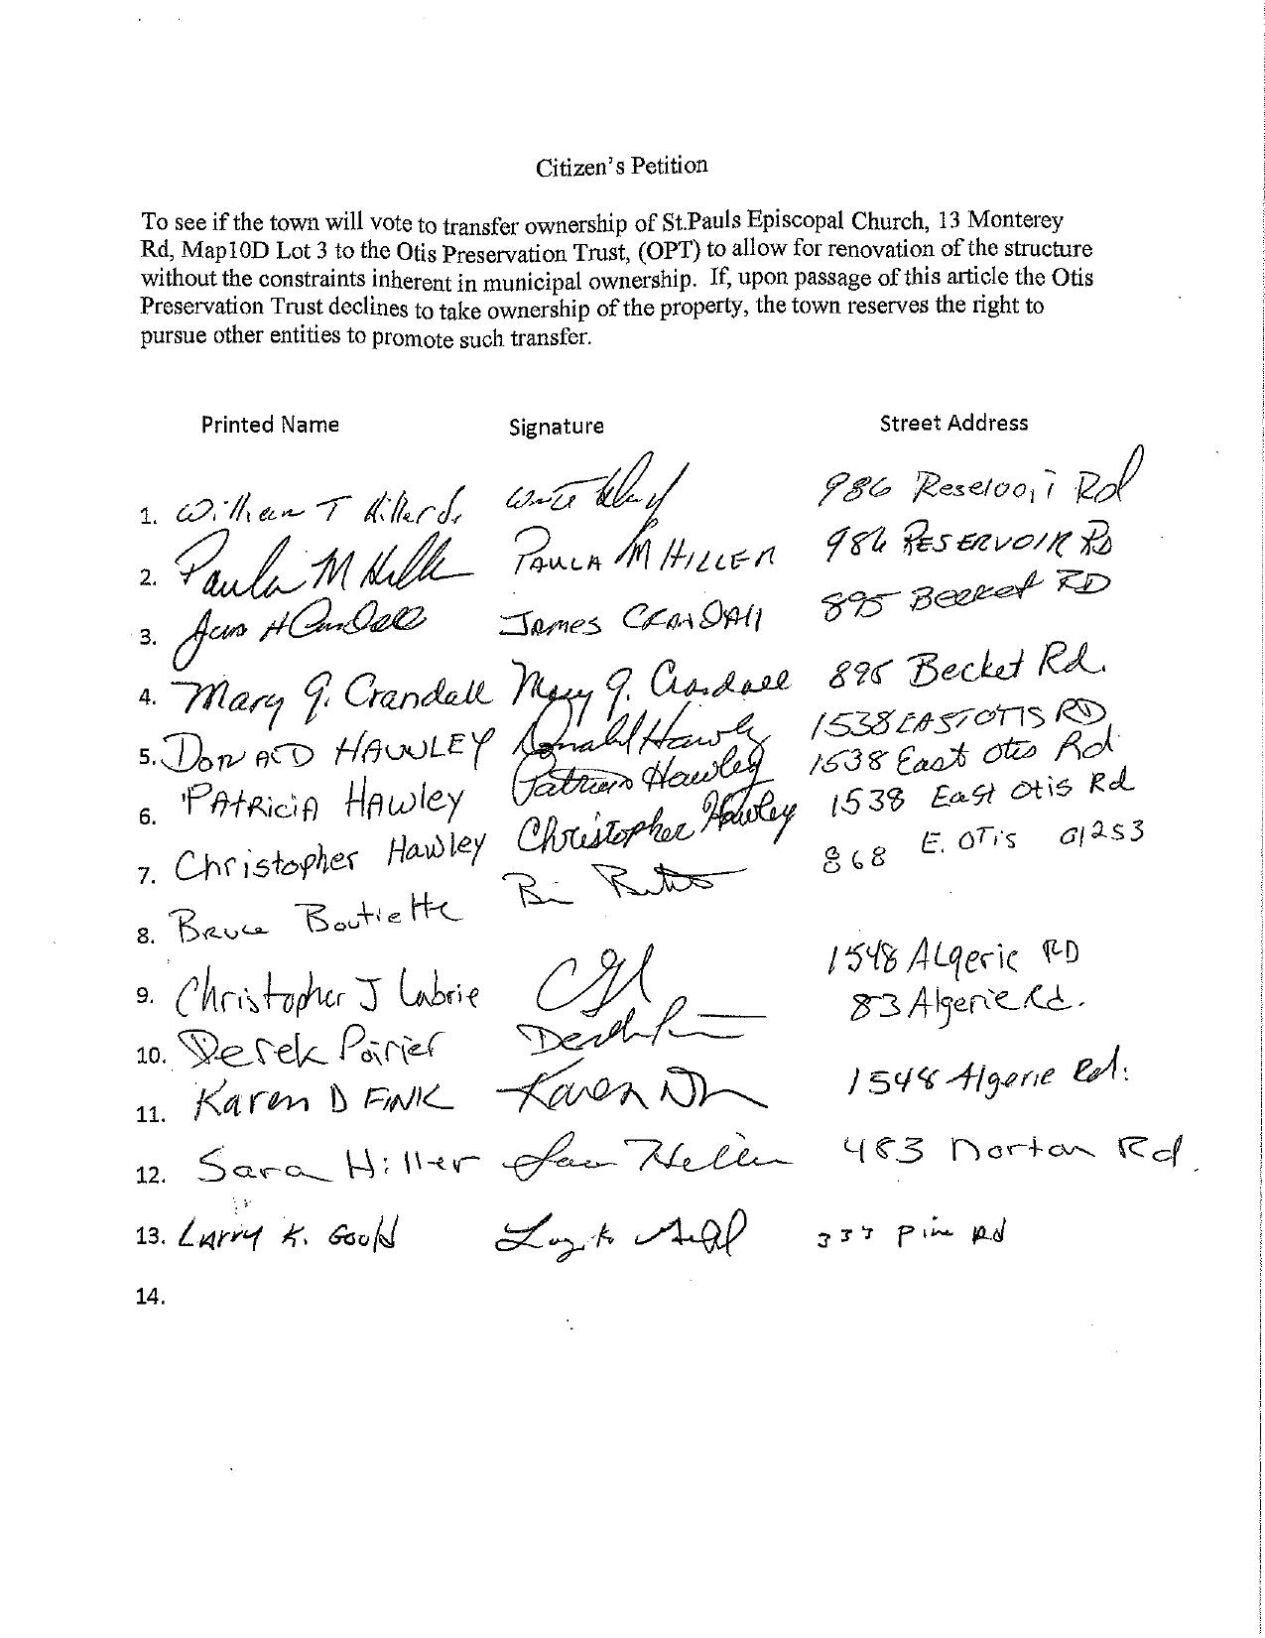 Citizen's Petition
To see if the town will vote to transfer ownership of St.Pauls Episcopal Church, 13 Monterey
Rd, Map10D Lot 3 to the Otis Preservation Trust, (OPT) to allow for renovation of the structure
without the constraints inherent in municipal ownership. If, upon passage of this article the Otis
Preservation Trust declines to take ownership of the property, the town reserves the right to
pursue other entities to promote such transfer.
Printed Name Signature Street Address
1. William T 986 Rd
2. Paula M Hiller PAULA M HILLER 986 RESERVOIR RD
3. James H Crandall JAMES CRANDALL 895 Becket RD
4. Mary J. Crandall Mary J. Crandall 895 Becket Rd.
5. DONALD HAWLEY Donald Hawley 1538 EAST OTIS RD
6. PATRICIA HAWLEY Patricia Hawley 1538 East Otis Rd
7. Christopher Hawley Christopher Hawley 1538 East Otis Rd
8. Bruce Boutiette 868 E. OTIS 01253
9. Christopher J Labrie 1548 ALgerie RD
10. Derek Poirier 83 Algerie Rd.
11. Karen D FINK Karen 1548 Algerie Rd.
12. Sara Hiller Sara Hiller 483 Norton Rd
13. LARRY K. Gould 333 Pine Rd
14.